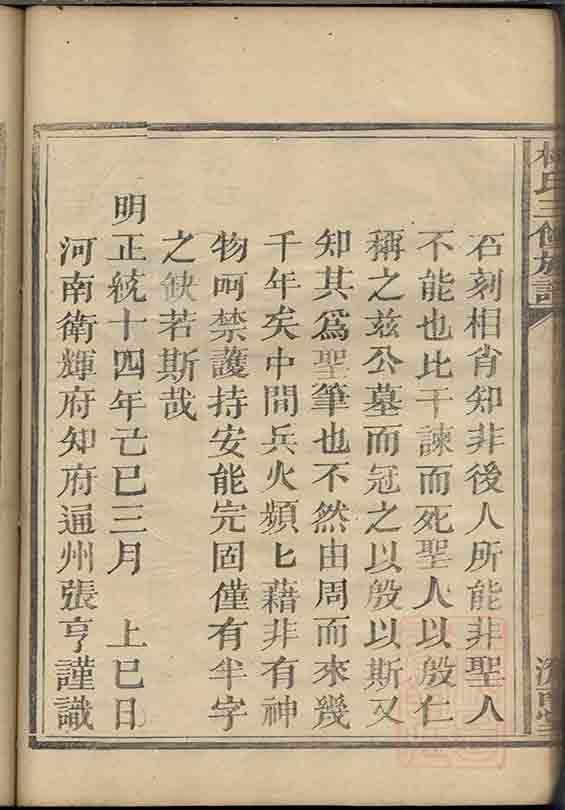 林氏三修族譜
石刻相肖知非後人所能非聖人
不能也比干諫而死聖人以殷仁
稱之兹公墓而冠之以殷以斯又
知其爲聖筆也不然由周而來幾
千年矣中間兵火頻匕藉非有神
物呵禁護持安能完固僅有半字
之缺若斯哉
明正統十四年己巳三月 上巳日
河南衛輝府知府通州張亨謹識